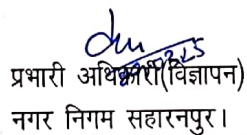 प्रभारी अधिकारी(विज्ञापन)
नगर निगम सहारनपुर।